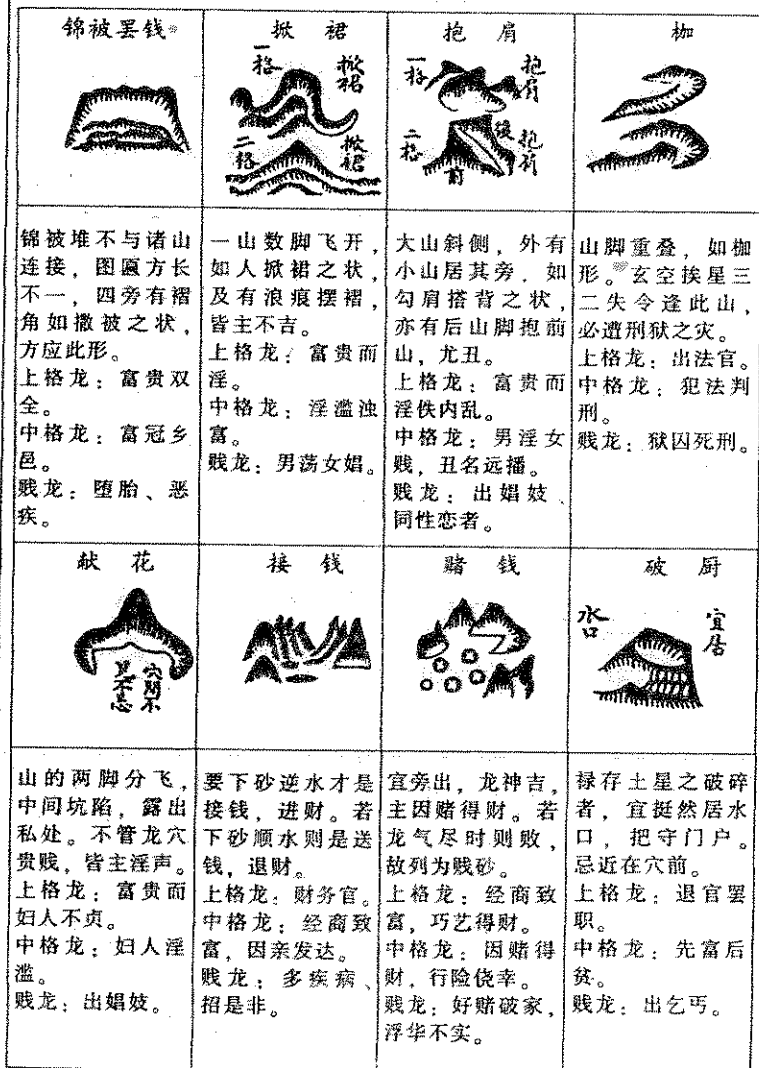 锦被罢钱
锦被堆不与诸山
连接，图匾方长
不一，四旁有褶
角如撒被之状，
方应此形。
上格龙：富贵双
全。
中格龙：富冠乡
邑。
贱龙：堕胎、恶
疾。
掀裙
一格
掀裙
二格
掀裙
一山数脚飞开，
如人掀裙之状，
及有浪痕摆褶，
皆主不吉。
上格龙：富贵而
淫。
中格龙：淫滥浊
富。
贱龙：男荡女娼。
抱肩
一格
抱肩
二格
后
抱肩
前
大山斜侧，外有
小山居其旁，如
勾肩搭背之状，
亦有后山脚抱前
山，尤丑。
上格龙：富贵而
淫佚内乱。
中格龙：男淫女
贱，丑名远播。
贱龙：出娼妓、
同性恋者。
枷
山脚重叠，如枷
形。玄空挨星三
二失令逢此山，
必遭刑狱之灾。
上格龙：出法官。
中格龙：犯法判
刑。
贱龙：狱囚死刑。
献花
山的两脚分飞，
中间坑陷，露出
私处。不管龙穴
贵贱，皆主淫声。
上格龙：富贵而
妇人不贞。
中格龙：妇人淫
滥。
贱龙：出娼妓。
接钱
要下砂逆水才是
接钱，进财。若
下砂顺水则是送
钱，退财。
上格龙：财务官。
中格龙：经商致
富，因亲发达。
贱龙：多疾病、
招是非。
赌钱
宜旁出，龙神吉，
主因赌得财。若
龙气尽时则败，
故列为贱砂。
上格龙：经商致
富，巧艺得财。
中格龙：因赌得
财，行险侥幸。
贱龙：好赌破家，
浮华不实。
破厨
水口
宜居
禄存土星之破碎
者，宜挺然居水
口，把守门户。
忌近在穴前。
上格龙：退官罢
职。
中格龙：先富后
贫。
贱龙：出乞丐。